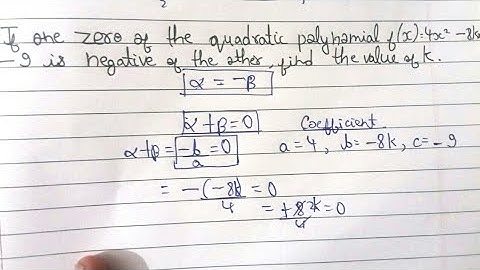 If one zero of the quadratic polynomial f(x): 4x² - 8k
- 9 is negative of the other, find the value of k.
α = -β
α + β = 0
Coefficient
α+β = -b/a = 0
a = 4, b = -8k, c = -9
= -(-8k)/4 = 0
= +8 2k/4 = 0